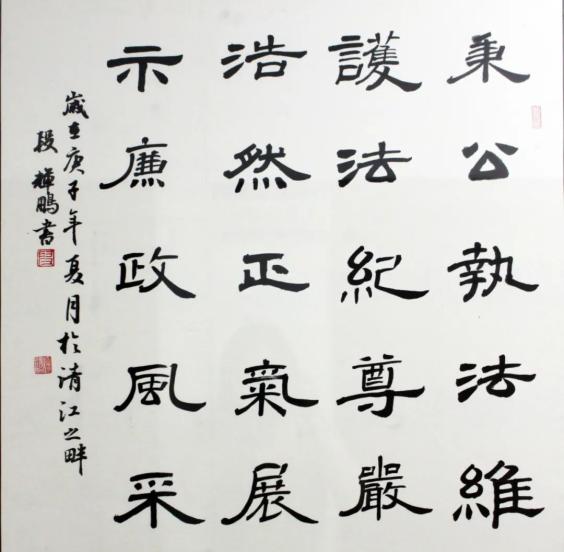 秉公執法維
護法紀尊嚴
浩然正氣展
示廉政風采
歲在庚子年夏月於清江之畔
段輝鵬書